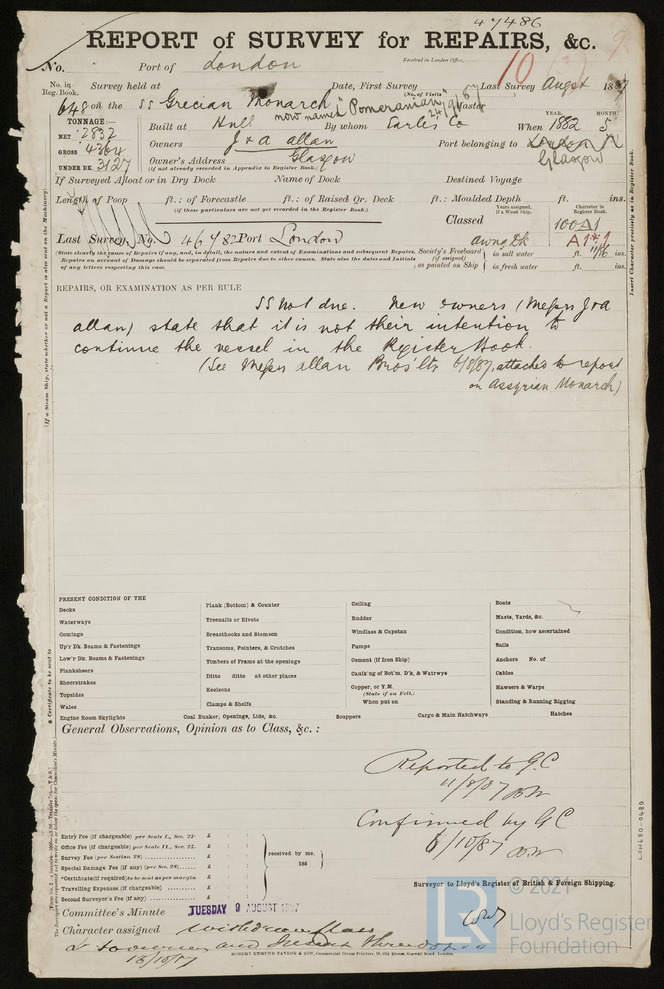 47486
REPORT of SURVEY for REPAIRS, &c.
No. Port of London Received in London Office, 10
No. in Reg. Book. Survey held at Date, First Survey Last Survey Augst 1887
(No. of Visits)
648 on the SS Grecian Monarch now named "Pomeranian" 24/9/87 Master
TONNAGE:— Built at Hull By whom Earles Co When 1882 5
YEAR. MONTH.
NET 2832
GROSS 4364 Owners J & A Allan Port belonging to London
UNDER DK. 3127 Owner's Address Glasgow Glasgow
(if not already recorded in Appendix to Register Book.)
If Surveyed Afloat or in Dry Dock Name of Dock Destined Voyage
Length of Poop ft.: of Forecastle ft.: of Raised Qr. Deck ft.: Moulded Depth ft. ins.
(if these particulars are not yet recorded in the Register Book.)
Years assigned, if a Wood Ship. Character in Register Book.
Classed 100A1
Last Survey, No. 46782 Port London Awng Dk A1*1 11/86
(State clearly the cause of Repairs if any, and, in detail, the nature and extent of Examinations and subsequent Repairs.
Repairs on account of Damage should be separated from Repairs due to other causes. State also the dates and Initials
of any letters respecting this case.
Society's Freeboard (if assigned) as painted on Ship { in salt water ft. ins.
in fresh water ft. ins.
REPAIRS, OR EXAMINATION AS PER RULE
SS not due. New owners (Messrs J & A
Allan) state that it is not their intention to
continue the vessel in the Register Book.
(See Messrs Allan Bros' ltr 6/8/87, attached to report
on Assyrian Monarch)
PRESENT CONDITION OF THE
Decks
Waterways
Comings
Up'r Dk. Beams & Fastenings
Low'r Dk. Beams & Fastenings
Planksheers
Sheerstrakes
Topsides
Wales
Engine Room Skylights
Plank (Bottom) & Counter
Treenails or Rivets
Breasthooks and Stemson
Transoms, Pointers, & Crutches
Timbers of Frame at the openings
Ditto Ditto at other places
Keelsons
Clamps & Shelfs
Coal Bunker, Openings, Lids, &c.
Ceiling
Rudder
Windlass & Capstan
Pumps
Cement (if Iron Ship)
Caulk'ng of Bot'm, D'k, & Watrwys
Copper, or Y.M.
(State if on Felt.)
When put on
Scuppers
Cargo & Main Hatchways
Boats
Masts, Yards, &c.
Condition, how ascertained
Sails
Anchors No. of
Cables
Hawsers & Warps
Standing & Running Rigging
Hatches
General Observations, Opinion as to Class, &c. :
Reported to G.C
11/8/87
Confirmed by G C
6/10/87
Entry Fee (if chargeable) per Scale I., Sec. 27. £
Office Fee (if chargeable) per Scale II., Sec. 27. £
Survey Fee (per Section 28) £
Special Damage Fee (if any) (per Sec. 28) £
*Certificate(if required)to be sent as per margin £
Travelling Expenses (if chargeable) £
Second Surveyor's Fee (if any) £
received by me,
188
Surveyor to Lloyd's Register of British & Foreign Shipping.
Committee's Minute TUESDAY 9 AUGUST 1887
Character assigned
ROBERT EDMUND TAYLOR & SON, Commercial Steam Printers, 19, Old Street, Goswell Road, London
© 2021
LR
Lloyd's Register
Foundation
(If a Steam Ship, state whether or not a Report is also sent on the Machinery)
* Certificate to be sent to
Insert Character precisely as in Register Book.
LON480-0480